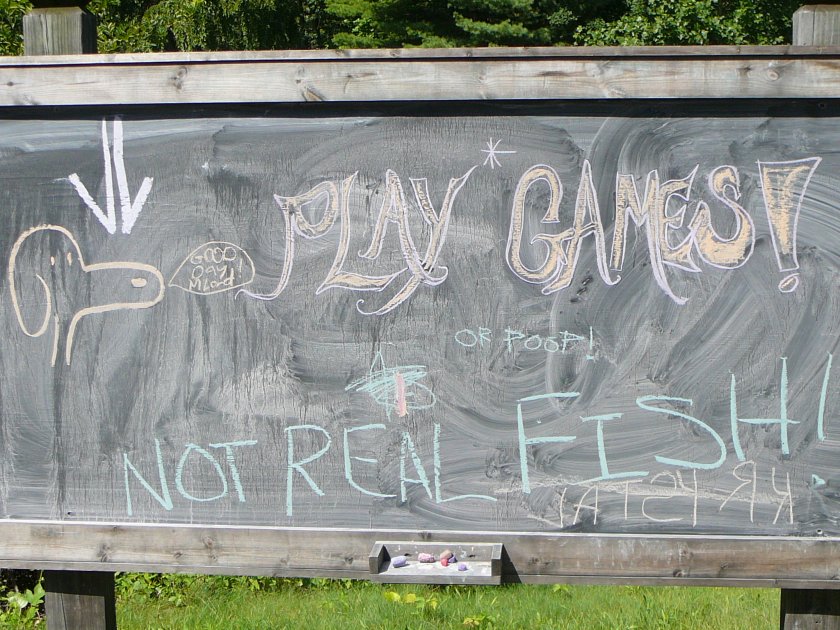 GOOD
DAY
M'Lord!
PLAY* GAMES!
OR POOP!
NOT REAL FISH!
KRYSTAL